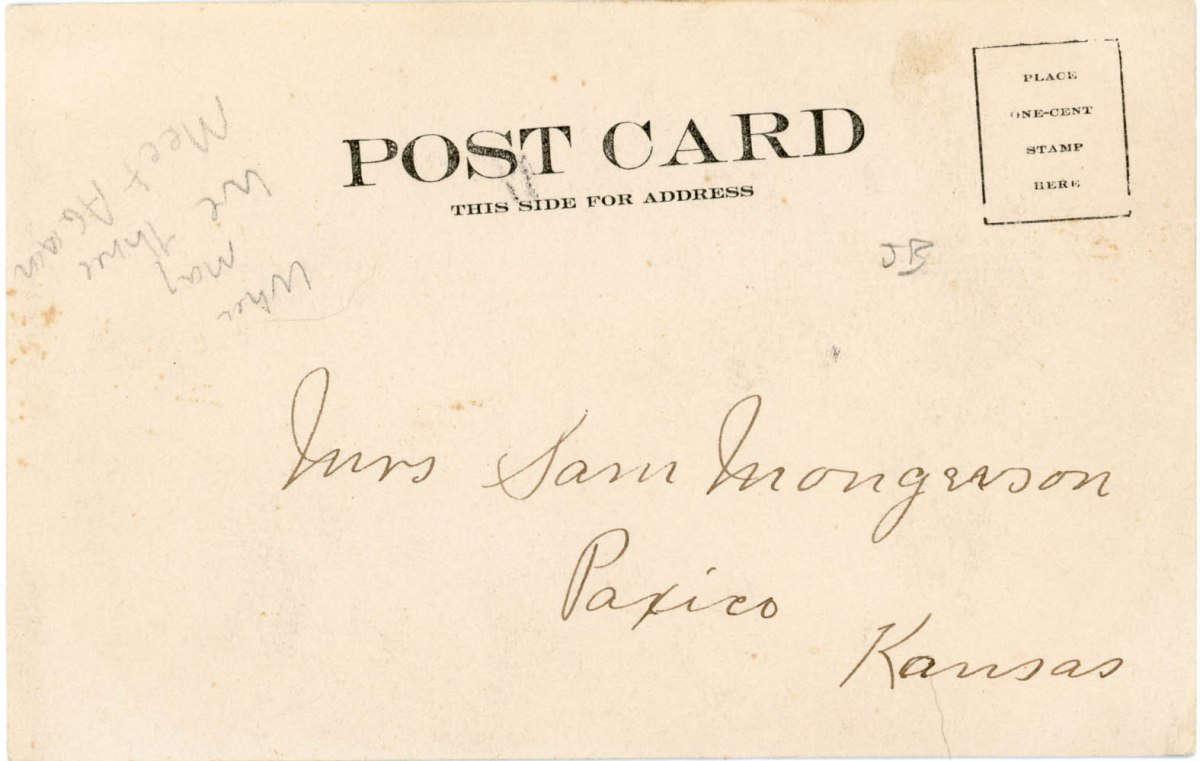 POST CARD
THIS SIDE FOR ADDRESS
PLACE
ONE-CENT
STAMP
HERE
When
may
We three
Meet Again
JB
Mrs Sam Mongerson
Paxico
Kansas